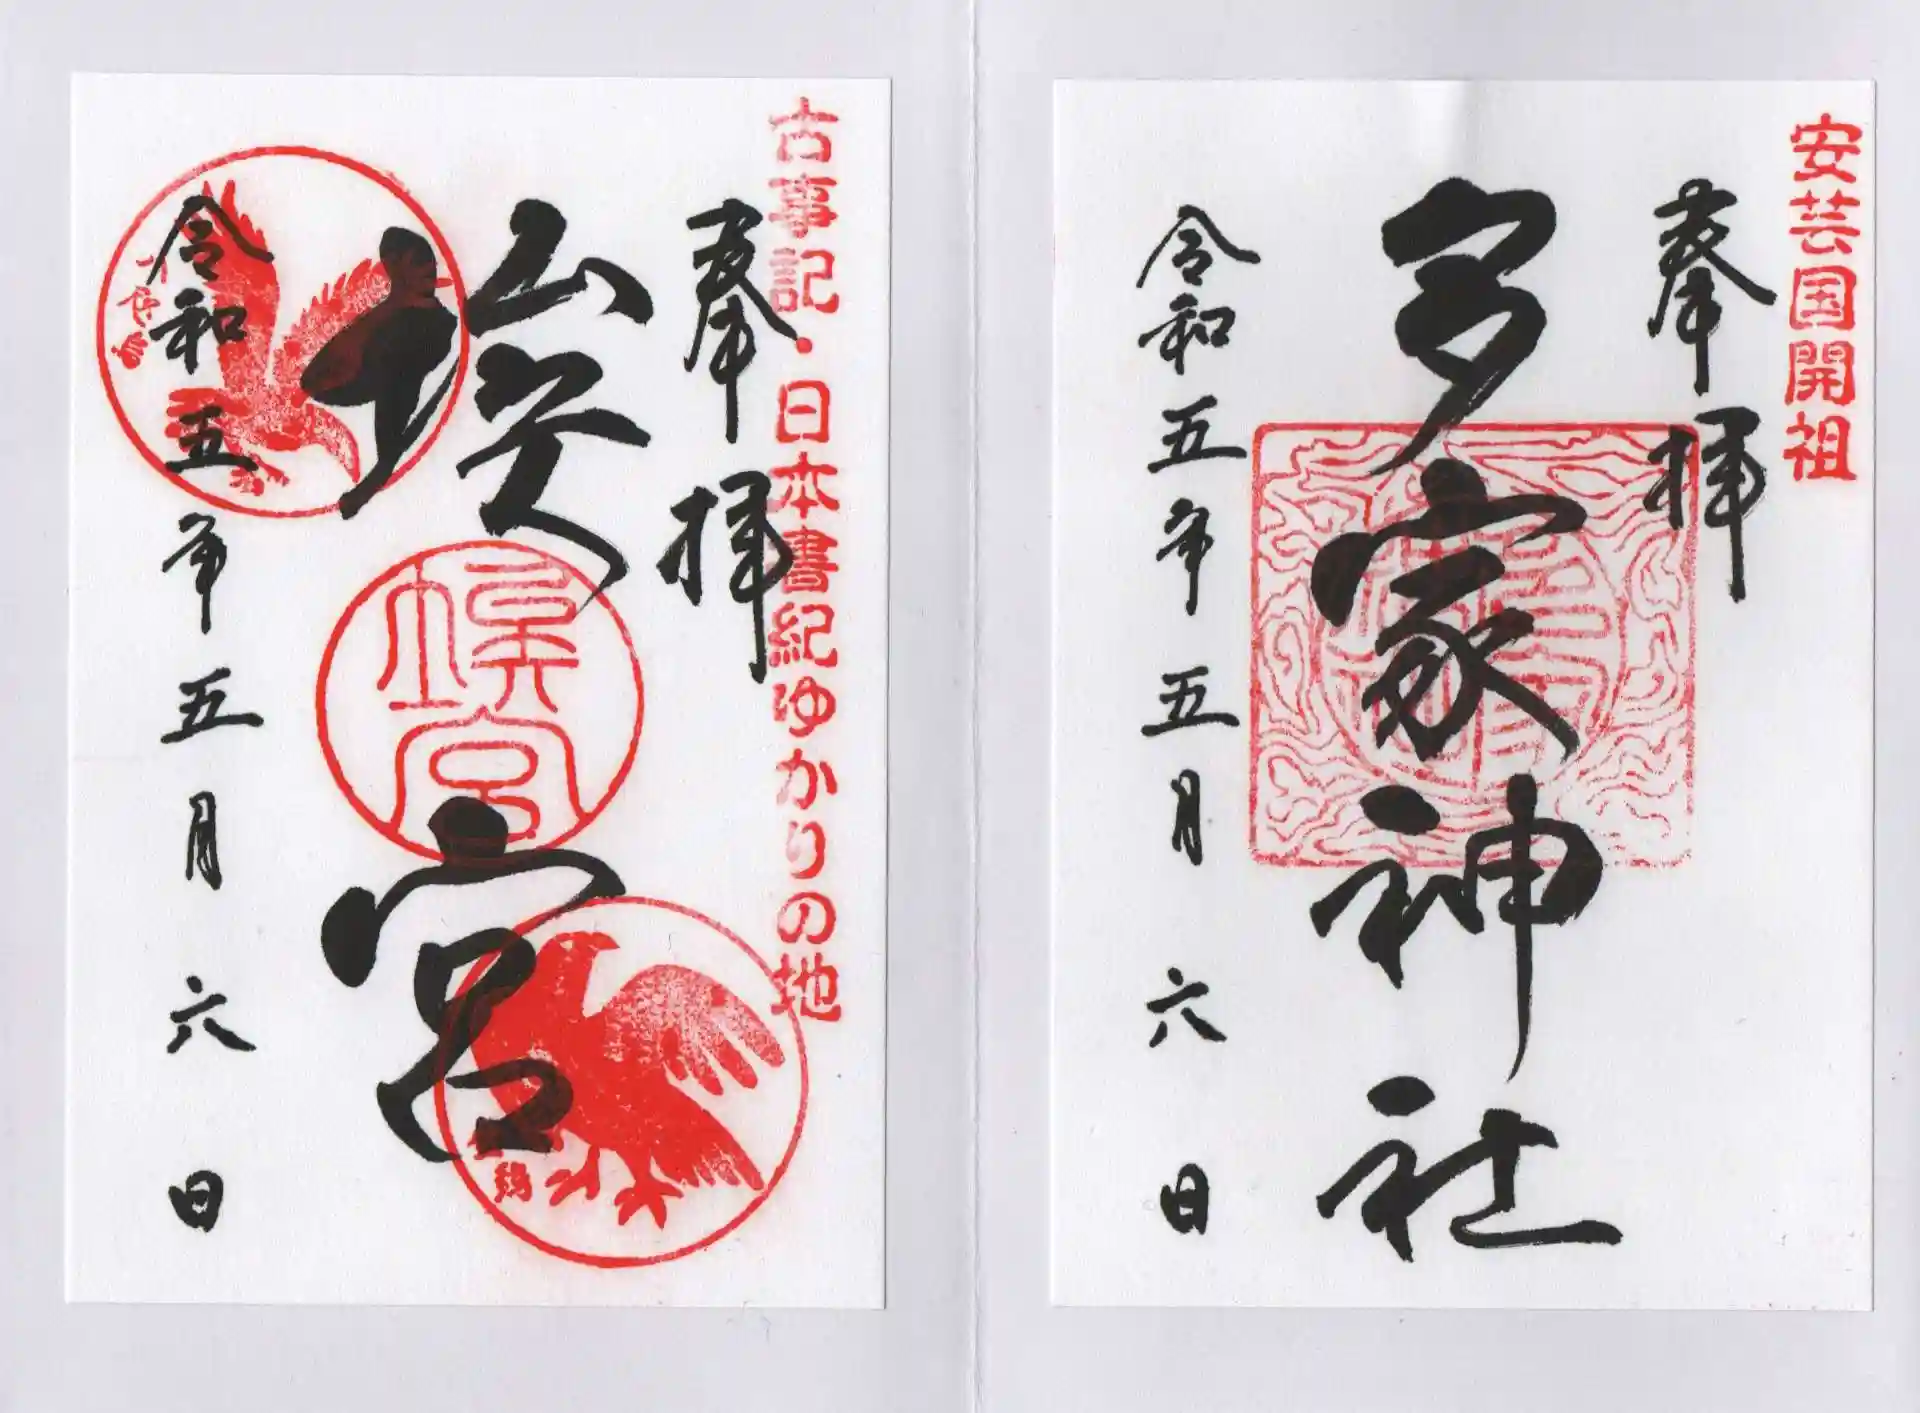 安芸国開祖
奉拝
多家神社
令和五年五月六日
古事記・日本書紀ゆかりの地
奉拝
埃宮
埃宮
令和五年五月六日